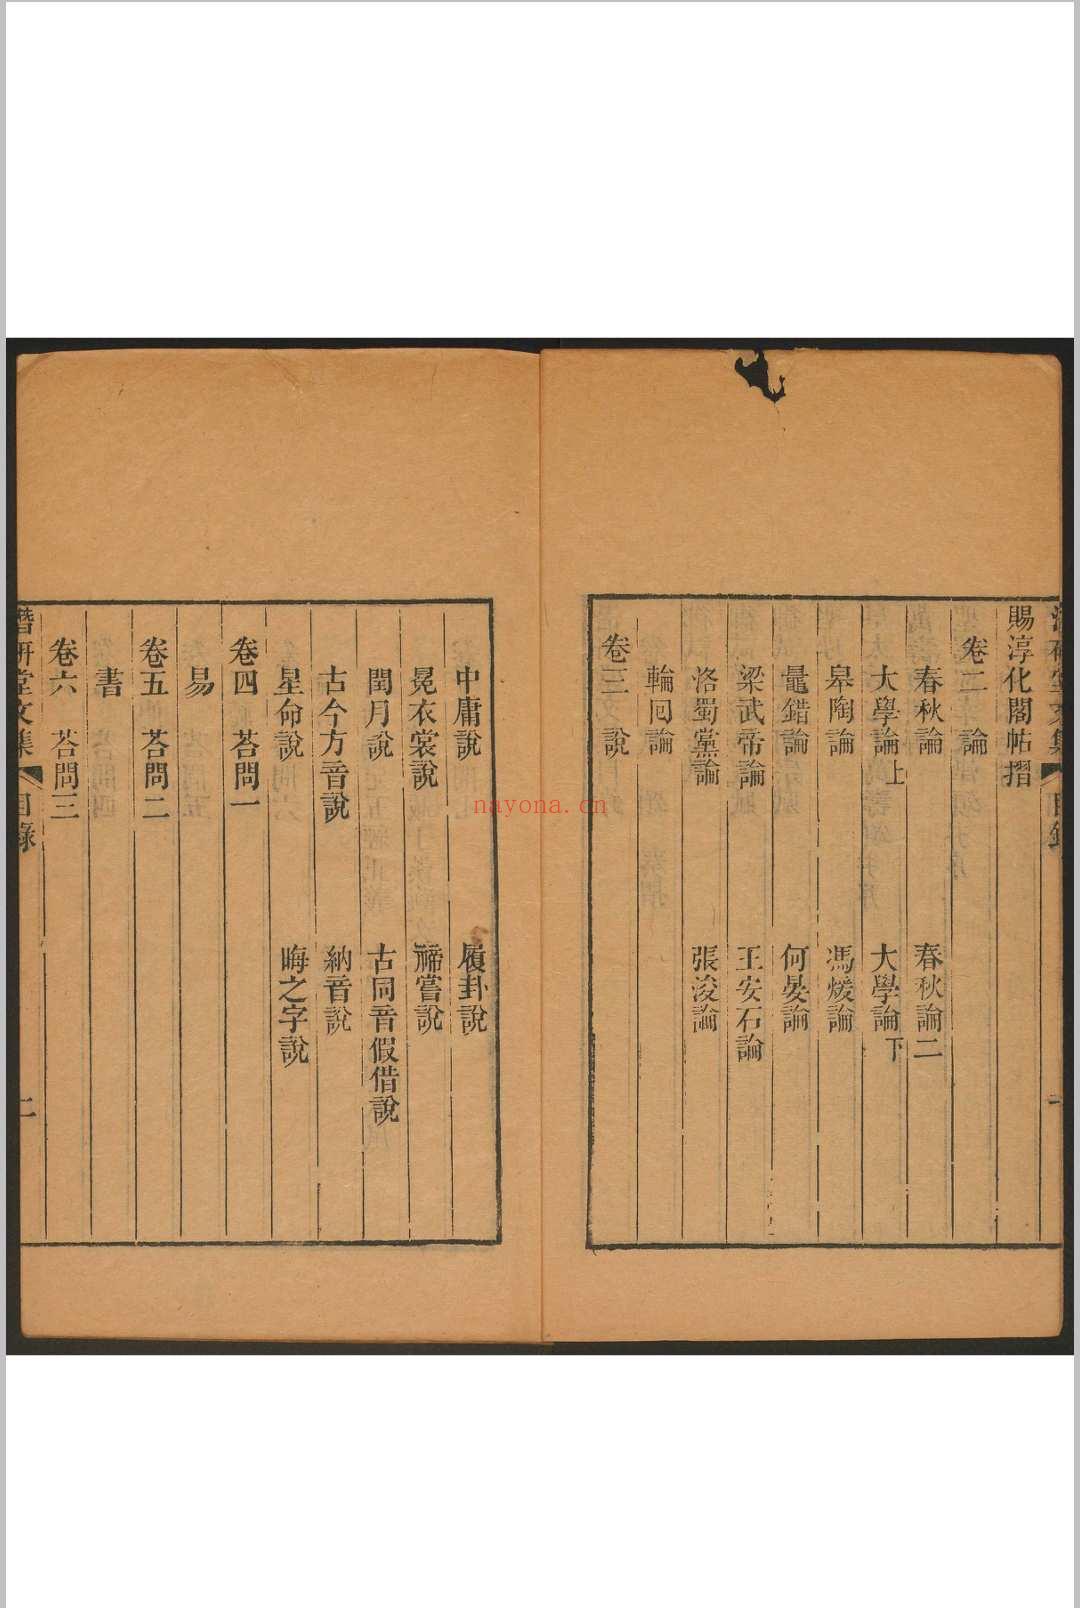 賜淳化閣帖摺
卷二 論
春秋論 春秋論二
大學論上 大學論下
皋陶論 馮煖論
鼂錯論 何晏論
梁武帝論 王安石論
洛蜀黨論 張浚論
輪囘論
卷三 說
中庸說 履卦說
冕衣裳說 禘嘗說
閏月說 古同音假借說
古今方音說 納音說
星命說 晦之字說
卷四 荅問一
易
卷五 荅問二
書
卷六 荅問三
潛研堂文集 目錄 二
nayona.cn